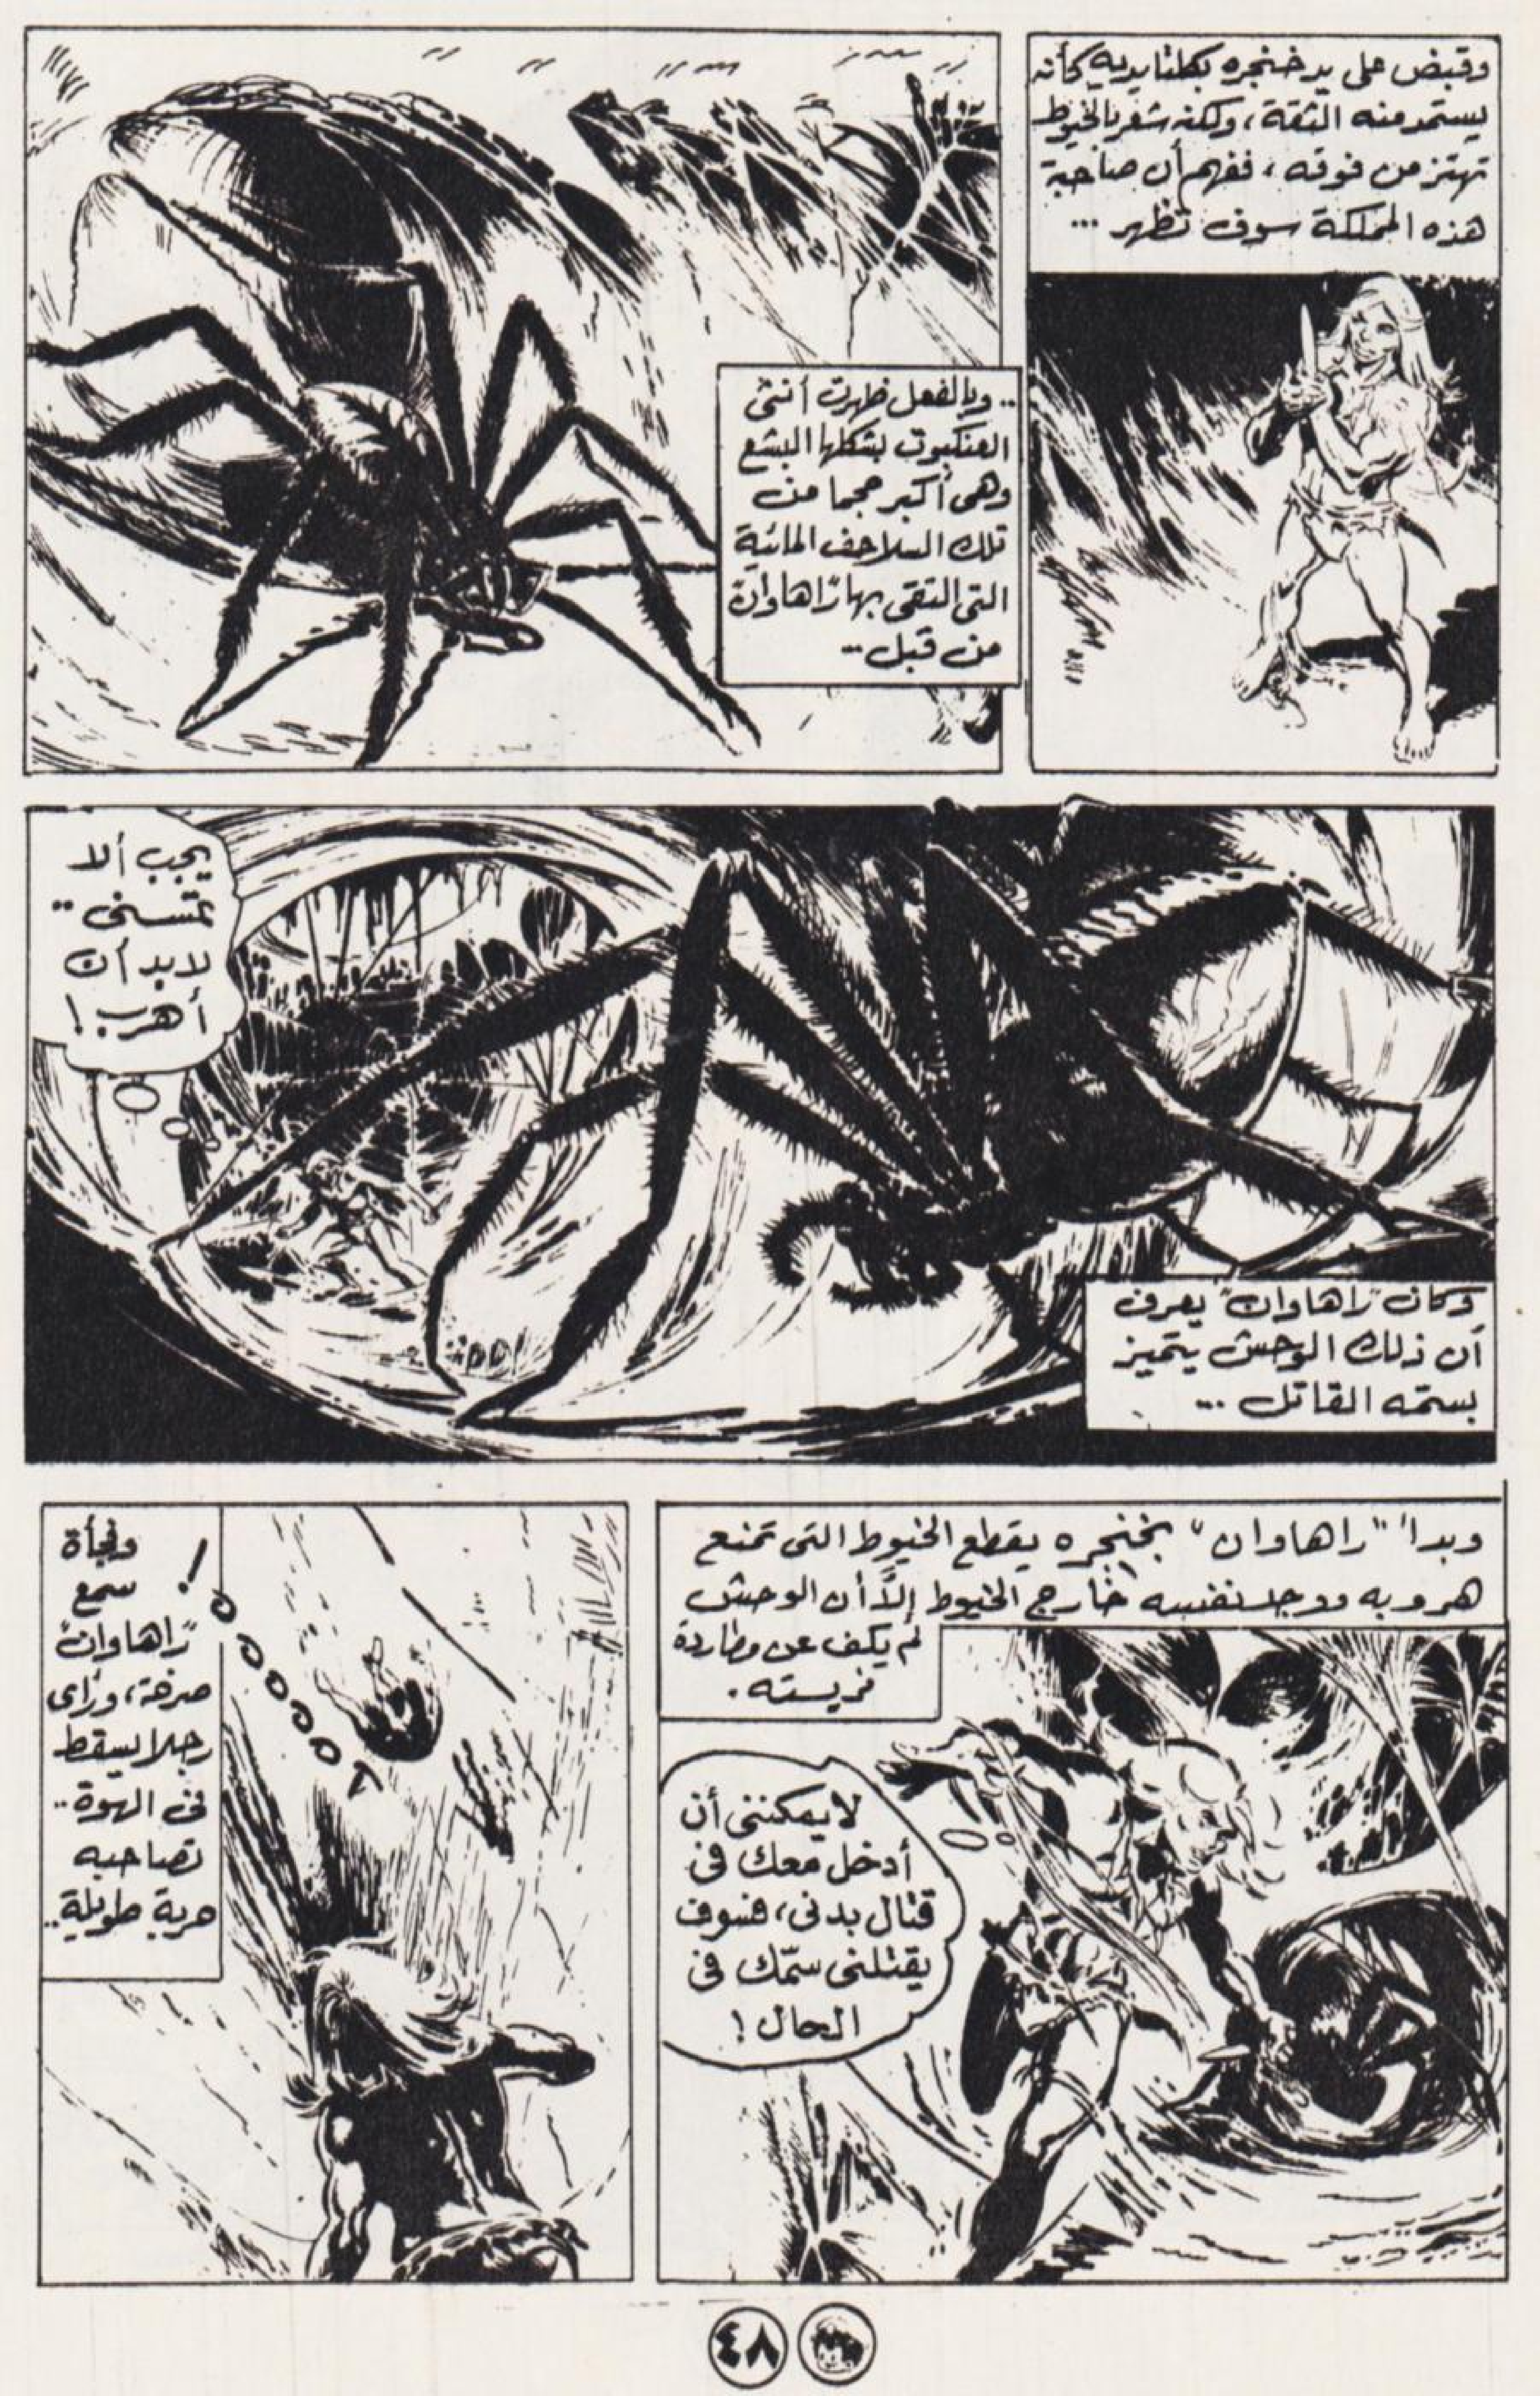 وقبض على يد خنجره بكلتا يديه كأنه
يستمد منه الثقة، ولكنه شعر بالخيوط
تهتز من فوقه، ففهم أن صاحبة
هذه المملكة سوف تظهر ...
.. وبالفعل ظهرت أنثى
العنكبوت بشكلها البشع
وهى أكبر حجما من
تلك السلاحف المائية
التى التقى بها "راهاوان"
من قبل ..
يجب ألا
تمسنى ..
لابد أن
أهرب !
وكان "راهاوان" يعرف
أن ذلك الوحش يتميز
بسمه القاتل ...
وبدأ "راهاوان" بخنجره يقطع الخيوط التى تمنع
هروبه ووجد نفسه خارج الخيوط إلّا أن الوحش
لم يكف عن مطاردة
فريسته .
لا يمكننى أن
أدخل معك فى
قتال بدنى، فسوف
يقتلنى سمّك فى
الحال !
وفجأة
سمع
"راهاوان"
صرخة، ورأى
رجلا يسقط
فى الهوة ..
تصاحبه
حربة طويلة ..
٤٨